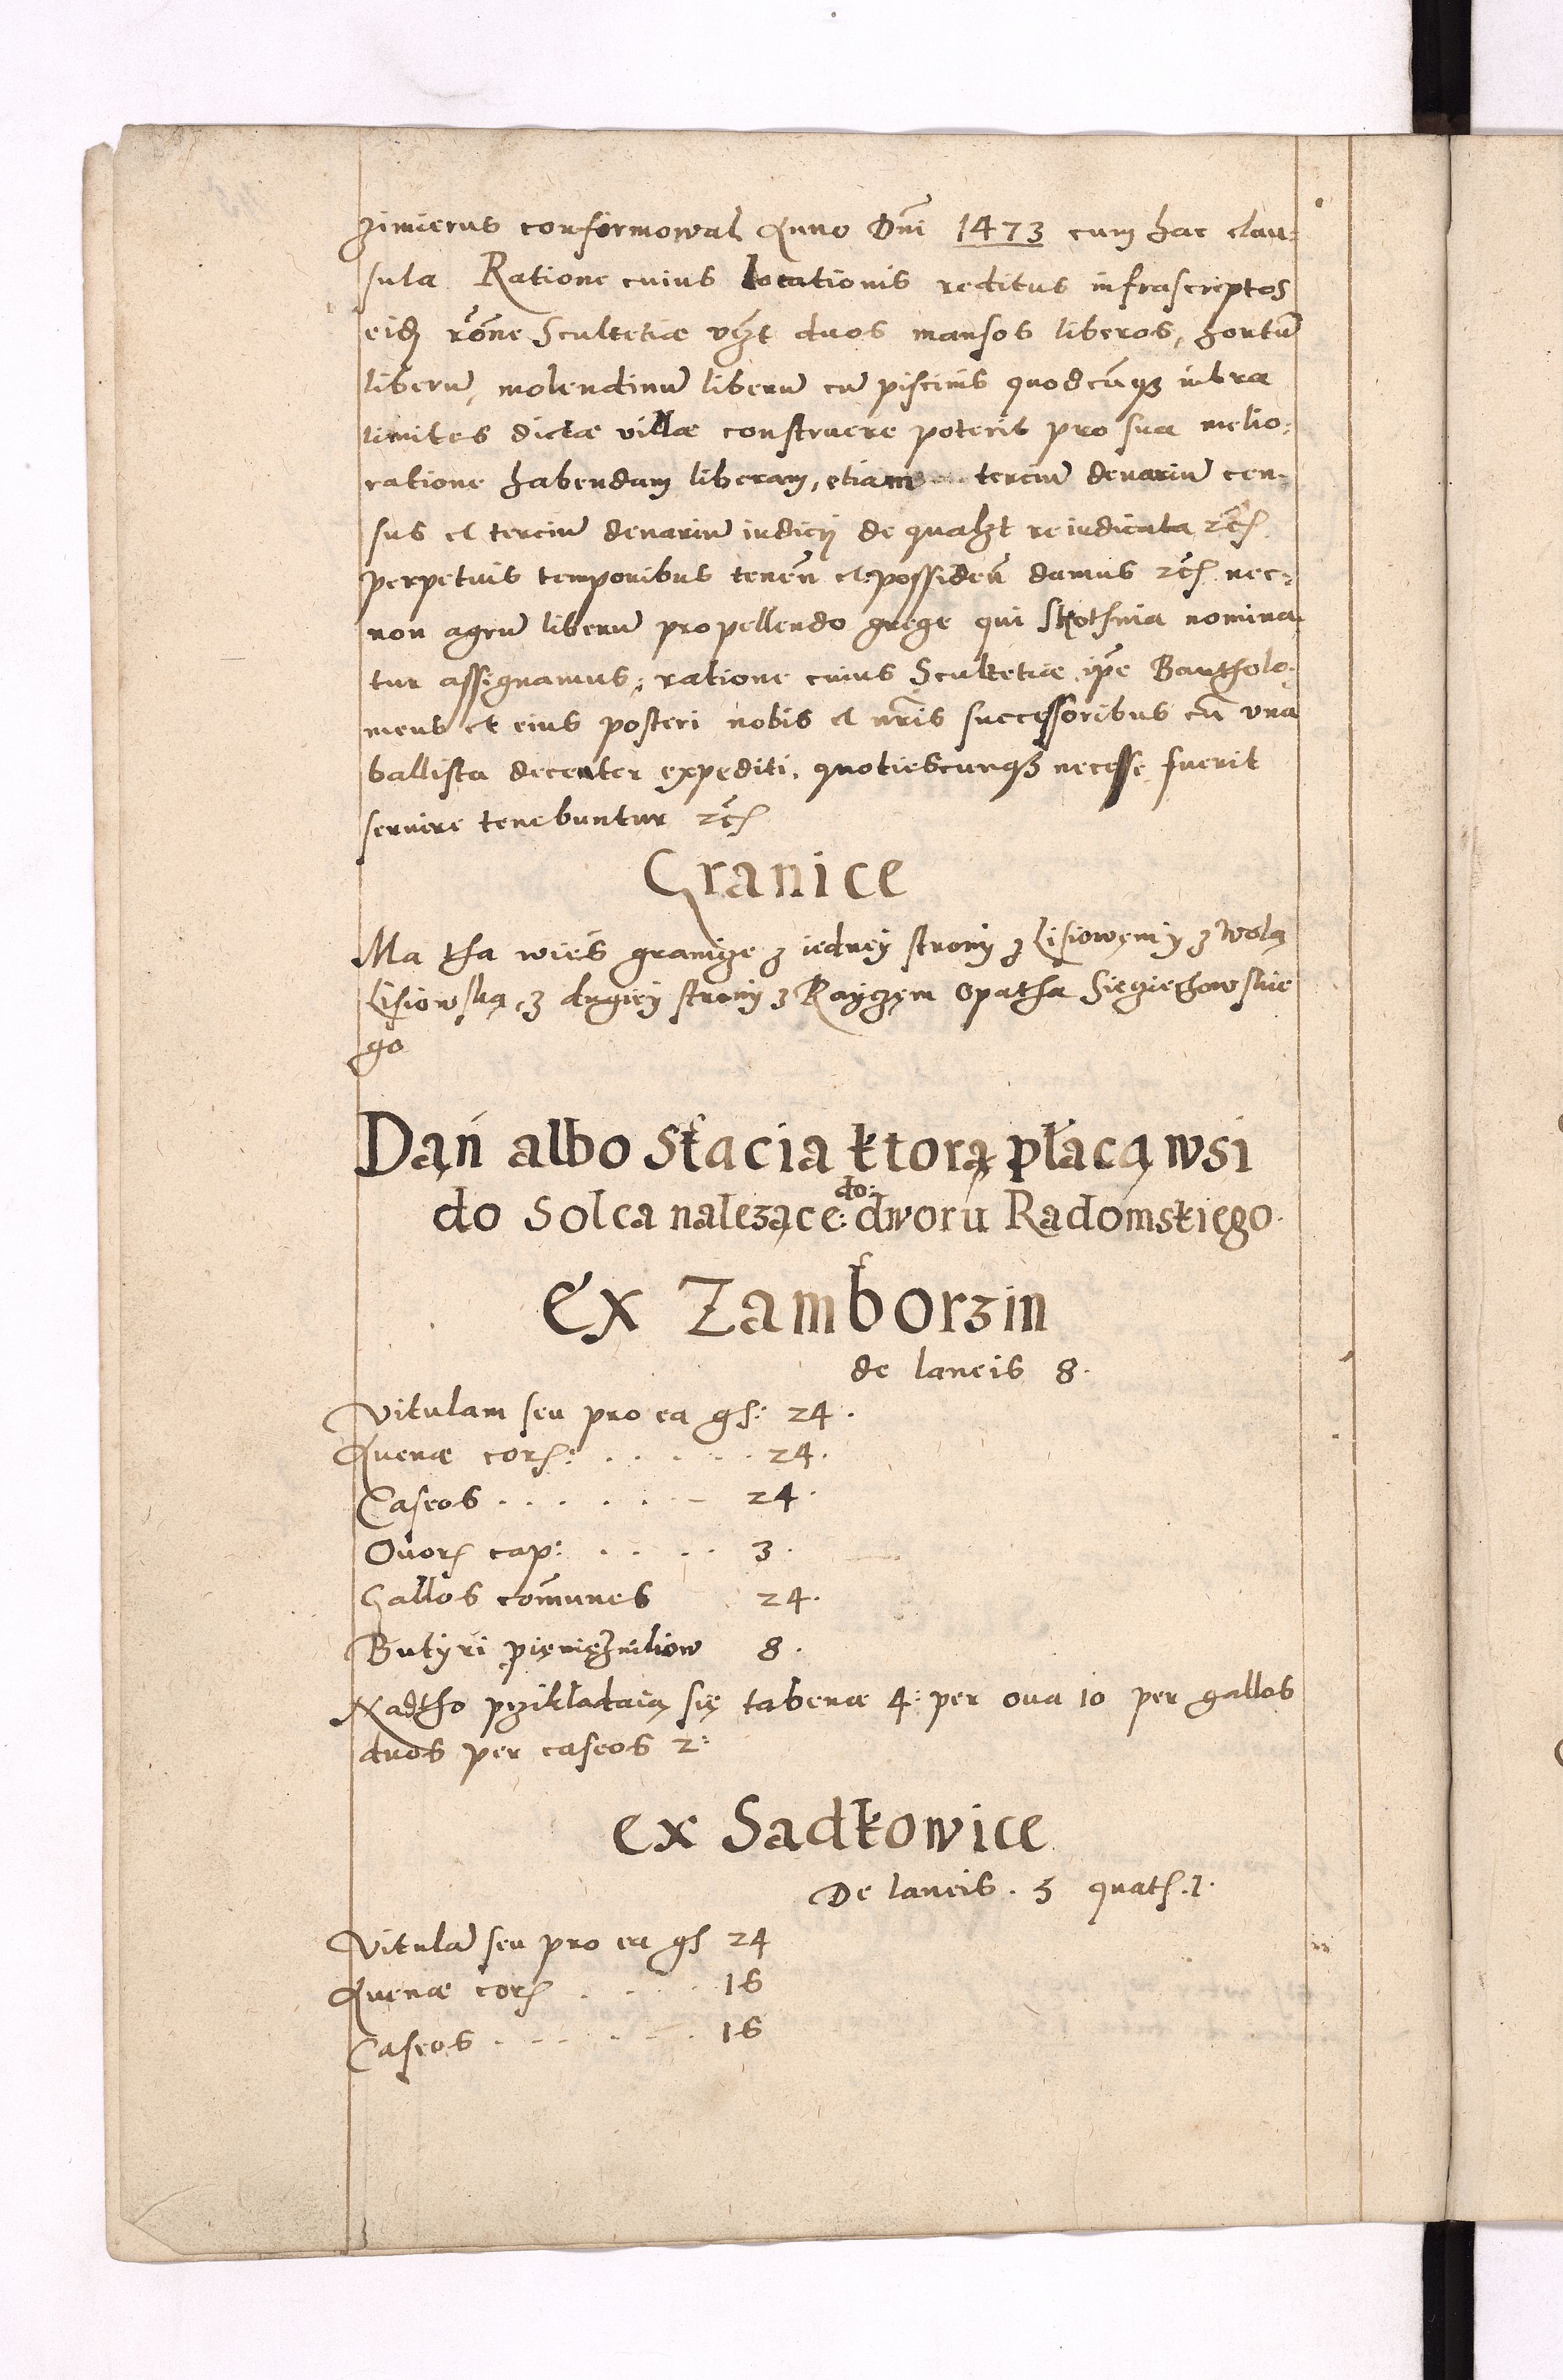 zimierus confirmowal Anno Dni 1473 cum hac clau:
sula Ratione cuius locationis reditus infrascriptos
eidẽ rõne Scultetiæ vꝫt duos mansos liberos, hortũ
liberũ, molendinũ liberũ cũ piscinis quodcũqꝫ intra
limites dictæ villæ construere poterit pro sua melio:
ratione habendam liberam, etiam terciũ denariũ cen-
sus et terciũ denariũ iudicij de qualꝫt re iudicata ꝛc̃
perpetuis temporibus teneñ et possideñ damus ꝛc̃ nec:
non agrũ liberũ propellendo grege qui Skothnia nomina-
tur assignamus: ratione cuius Scultetiæ ip̃e Bartholo-
meus et eius posteri nobis et nr̃is successoribus cũ vna
ballista decenter expediti, quotiescunqꝫ necesse fuerit
seruire tenebuntur ꝛc̃
Granice
Ma tha wieś granicze z iedney strony z Lisiowęmy z Wolą
Lisiowską, z drugiey strony z Rayczęm Opatha Sieciechowskie
go
Dąń albo Stacia ktorą płacą wsi
do Solca nalezące: do: dworu Radomskiego.
Ex Zamborzin
de laneis 8.
Vitulam seu pro ea gs: 24.
Auenæ cor: . . . . . 24.
Caseos . . . . . 24.
Ouor cap: . . . . 3.
Gallos comũnes 24.
Butyri pięniężnikow 8.
Nadtho przikładaią się tabenæ 4: per oua 10 per gallos
duos per caseos 2:
ex Sadkowice
De laneis . 3 quat. 1.
Vitulã seu pro ea gs 24
Auenæ cor . . . . 16
Caseos . . . . . 16